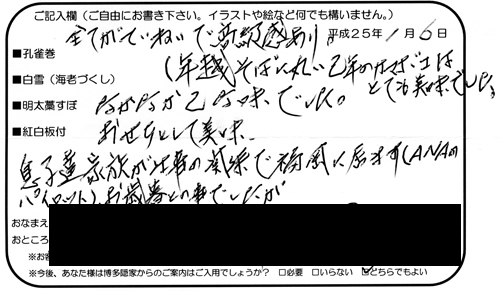 ご記入欄(ご自由にお書き下さい。イラストや絵など何でも構いません。)
全てがていねいで高級感あり。 平成25年1月6日
■孔雀巻
(年越そばに入れ
■白雪(海老づくし) とても美味でした。
■明太藁すぼ なかなか 味でした。
■紅白板付 おせちとして美味
息子達家族が仕事の関係で福岡に居ます(ANAの
パイロット)お歳暮との事でしたが
おなまえ
おところ
※お客
※今後、あなた様は博多隠家からのご案内はご入用でしょうか? □必要 □いらない □どちらでもよい